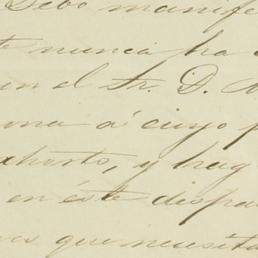 Debo manife
nunca ha
en el Sr. D.
ona á cuyo p
xhorto, y hay
en éste despa
es que necesita